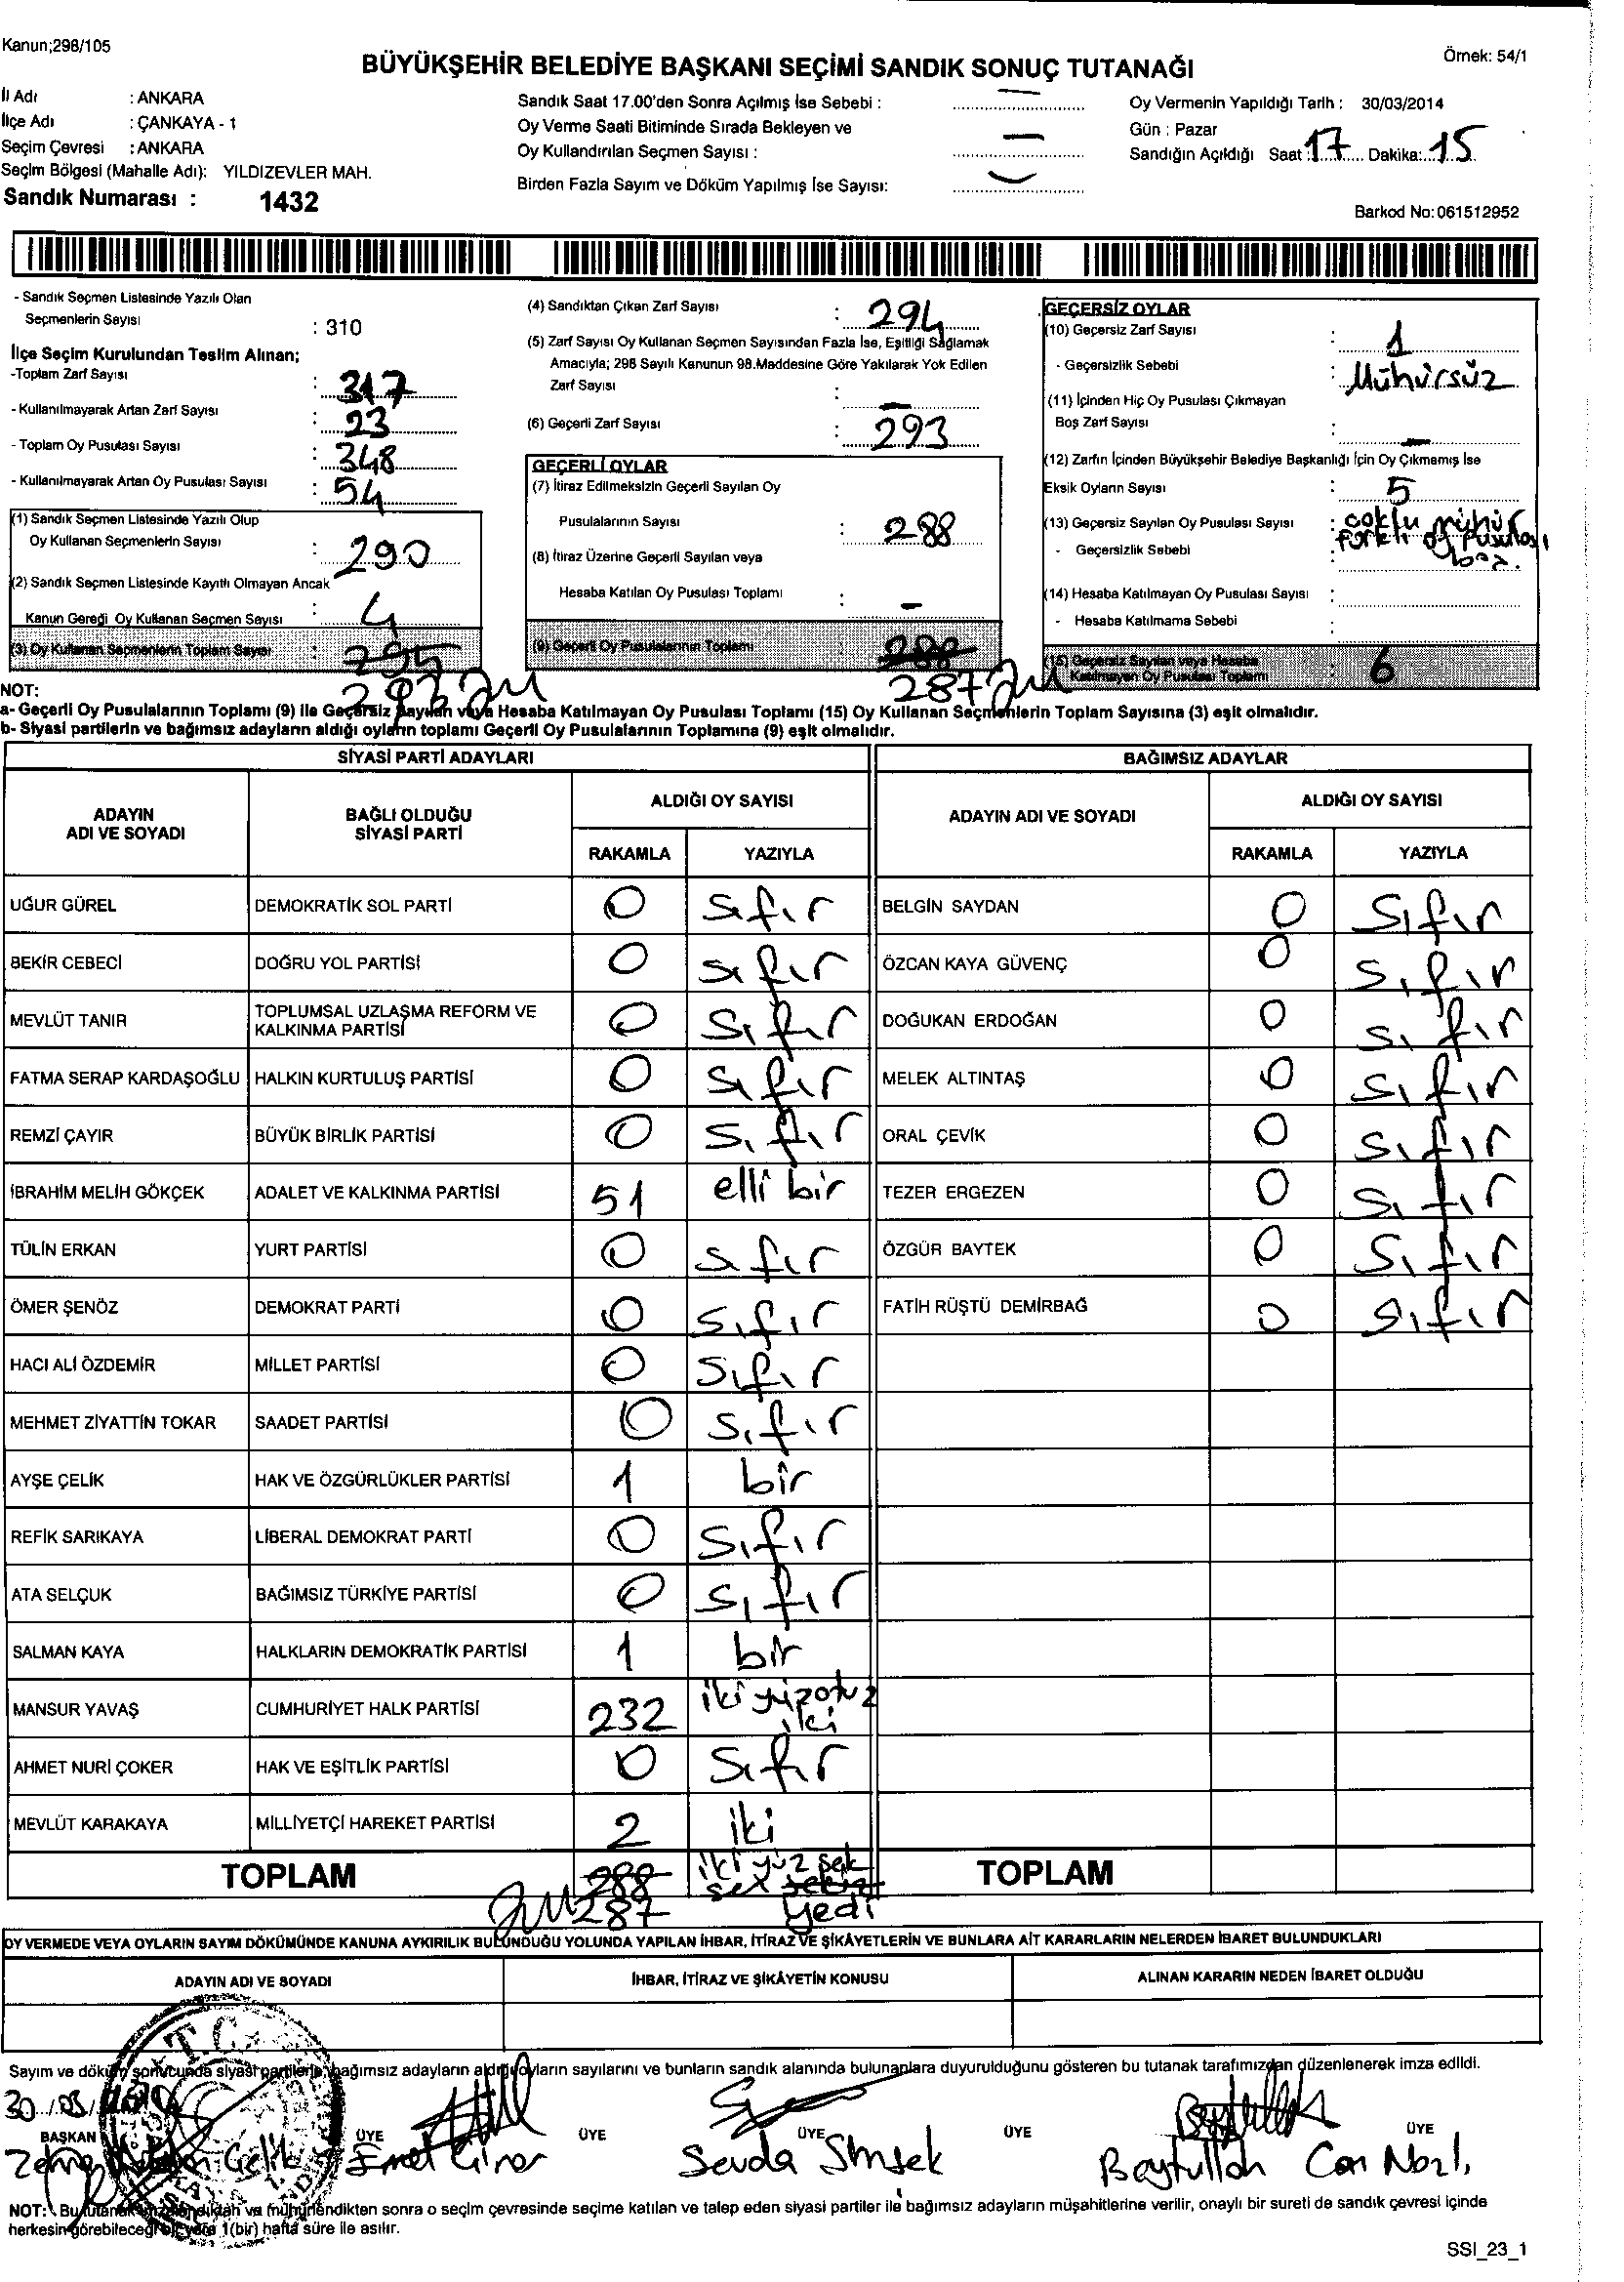 Kanun;298/105
Örnek: 54/1
BÜYÜKŞEHİR BELEDİYE BAŞKANI SEÇİMİ SANDIK SONUÇ TUTANAĞI
İl Adı : ANKARA
İlçe Adı : ÇANKAYA - 1
Seçim Çevresi : ANKARA
Seçim Bölgesi (Mahalle Adı): YILDIZEVLER MAH.
Sandık Numarası : 1432
Sandık Saat 17.00'den Sonra Açılmış İse Sebebi : —
Oy Verme Saati Bitiminde Sırada Bekleyen ve
Oy Kullandırılan Seçmen Sayısı : —
Birden Fazla Sayım ve Döküm Yapılmış İse Sayısı: —
Oy Vermenin Yapıldığı Tarih : 30/03/2014
Gün : Pazar
Sandığın Açıldığı Saat : 17 Dakika: 15
Barkod No: 061512952
- Sandık Seçmen Listesinde Yazılı Olan
Seçmenlerin Sayısı : 310
İlçe Seçim Kurulundan Teslim Alınan;
-Toplam Zarf Sayısı : 317
- Kullanılmayarak Artan Zarf Sayısı : 23
- Toplam Oy Pusulası Sayısı : 348
- Kullanılmayarak Artan Oy Pusulası Sayısı : 54
(1) Sandık Seçmen Listesinde Yazılı Olup
Oy Kullanan Seçmenlerin Sayısı : 290
(2) Sandık Seçmen Listesinde Kayıtlı Olmayan Ancak
Kanun Gereği Oy Kullanan Seçmen Sayısı : 4
(3) Oy Kullanan Seçmenlerin Toplam Sayısı :
293
(4) Sandıktan Çıkan Zarf Sayısı : 294
(5) Zarf Sayısı Oy Kullanan Seçmen Sayısından Fazla İse, Eşitliği Sağlamak
Amacıyla; 298 Sayılı Kanunun 98.Maddesine Göre Yakılarak Yok Edilen
Zarf Sayısı : —
(6) Geçerli Zarf Sayısı : 293
GEÇERLİ OYLAR
(7) İtiraz Edilmeksizin Geçerli Sayılan Oy
Pusulalarının Sayısı : 288
(8) İtiraz Üzerine Geçerli Sayılan veya
Hesaba Katılan Oy Pusulası Toplamı : —
(9) Geçerli Oy Pusulalarının Toplamı : 288
287
GEÇERSİZ OYLAR
(10) Geçersiz Zarf Sayısı : 1
- Geçersizlik Sebebi : Mühürsüz
(11) İçinden Hiç Oy Pusulası Çıkmayan
Boş Zarf Sayısı : —
(12) Zarfın İçinden Büyükşehir Belediye Başkanlığı İçin Oy Çıkmamış İse
Eksik Oyların Sayısı : 5
(13) Geçersiz Sayılan Oy Pusulası Sayısı : çoklu mühür
- Geçersizlik Sebebi : farklı oy pusulası
(14) Hesaba Katılmayan Oy Pusulası Sayısı :
- Hesaba Katılmama Sebebi :
(15) Geçersiz Sayılan veya Hesaba
Katılmayan Oy Pusulası Toplamı : 6
NOT:
a- Geçerli Oy Pusulalarının Toplamı (9) ile Geçersiz Sayılan veya Hesaba Katılmayan Oy Pusulası Toplamı (15) Oy Kullanan Seçmenlerin Toplam Sayısına (3) eşit olmalıdır.
b- Siyasi partilerin ve bağımsız adayların aldığı oyların toplamı Geçerli Oy Pusulalarının Toplamına (9) eşit olmalıdır.
SİYASİ PARTİ ADAYLARI BAĞIMSIZ ADAYLAR
ADAYIN ADI VE SOYADI BAĞLI OLDUĞU SİYASİ PARTİ ALDIĞI OY SAYISI ADAYIN ADI VE SOYADI ALDIĞI OY SAYISI
RAKAMLA YAZIYLA RAKAMLA YAZIYLA
UĞUR GÜREL DEMOKRATİK SOL PARTİ 0 sıfır BELGİN SAYDAN 0 sıfır
BEKİR CEBECİ DOĞRU YOL PARTİSİ 0 sıfır ÖZCAN KAYA GÜVENÇ 0 sıfır
MEVLÜT TANIR TOPLUMSAL UZLAŞMA REFORM VE KALKINMA PARTİSİ 0 sıfır DOĞUKAN ERDOĞAN 0 sıfır
FATMA SERAP KARDAŞOĞLU HALKIN KURTULUŞ PARTİSİ 0 sıfır MELEK ALTINTAŞ 0 sıfır
REMZİ ÇAYIR BÜYÜK BİRLİK PARTİSİ 0 sıfır ORAL ÇEVİK 0 sıfır
İBRAHİM MELİH GÖKÇEK ADALET VE KALKINMA PARTİSİ 51 elli bir TEZER ERGEZEN 0 sıfır
TÜLİN ERKAN YURT PARTİSİ 0 sıfır ÖZGÜR BAYTEK 0 sıfır
ÖMER ŞENÖZ DEMOKRAT PARTİ 0 sıfır FATİH RÜŞTÜ DEMİRBAĞ 0 sıfır
HACI ALİ ÖZDEMİR MİLLET PARTİSİ 0 sıfır
MEHMET ZİYATTİN TOKAR SAADET PARTİSİ 0 sıfır
AYŞE ÇELİK HAK VE ÖZGÜRLÜKLER PARTİSİ 1 bir
REFİK SARIKAYA LİBERAL DEMOKRAT PARTİ 0 sıfır
ATA SELÇUK BAĞIMSIZ TÜRKİYE PARTİSİ 0 sıfır
SALMAN KAYA HALKLARIN DEMOKRATİK PARTİSİ 1 bir
MANSUR YAVAŞ CUMHURİYET HALK PARTİSİ 232 iki yüz otuz iki
AHMET NURİ ÇOKER HAK VE EŞİTLİK PARTİSİ 0 sıfır
MEVLÜT KARAKAYA MİLLİYETÇİ HAREKET PARTİSİ 2 iki
TOPLAM 288 iki yüz sek TOPLAM
287 yedi
OY VERMEDE VEYA OYLARIN SAYIM DÖKÜMÜNDE KANUNA AYKIRILIK BULUNDUĞU YOLUNDA YAPILAN İHBAR, İTİRAZ VE ŞİKÂYETLERİN VE BUNLARA AİT KARARLARIN NELERDEN İBARET BULUNDUKLARI
ADAYIN ADI VE SOYADI İHBAR, İTİRAZ VE ŞİKÂYETİN KONUSU ALINAN KARARIN NEDEN İBARET OLDUĞU
Sayım ve döküm sonucunda siyasi partilerle, bağımsız adayların aldığı oyların sayılarını ve bunların sandık alanında bulunanlara duyurulduğunu gösteren bu tutanak tarafımızdan düzenlenerek imza edildi.
30 / 03 /
T.C.
BAŞKAN ÜYE ÜYE ÜYE ÜYE ÜYE
Sevda Şimşek Beytullah Can
NOT: Bu tutanak imzalandıktan ve mühürlendikten sonra o seçim çevresinde seçime katılan ve talep eden siyasi partiler ile bağımsız adayların müşahitlerine verilir, onaylı bir sureti de sandık çevresi içinde
herkesin görebileceği bir yere 1(bir) hafta süre ile asılır.
SSI_23_1